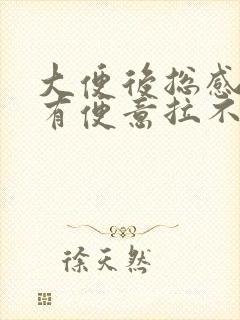 大便后总感
有便意拉不
徐天然